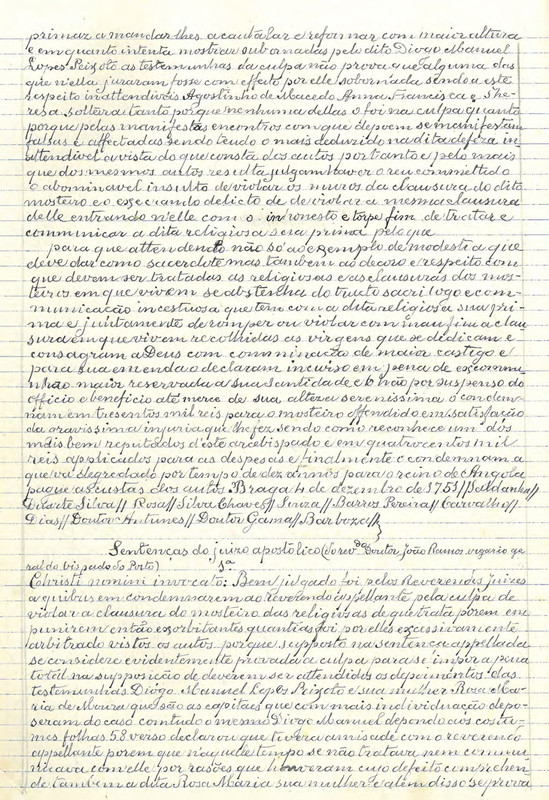 prima z a mandar lhes acautelar e reformar com maior altura
e em quanto intenta mostrar subornadas pelo dito Diogo Manuel
Lopes Peixoto as testemunhas da culpa não prova que alguma das
que n'ella juraram fosse com effeito por elle sobornada sendo a este
respeito inattendiveis Agostinho de Macedo Anna Francisca e The-
resa solteira tanto porque nenhuma dellas o foi na culpa quanto
porque pelas manifestas encontros com que depoem se manifestam
falsas e affectadas sendo tudo o mais deduzido na dita defeza in-
attendivel a vista do que consta dos autos portanto e pelo mais
que dos mesmos autos resulta julgam haver o reu committido
o abominavel insulto de violar os muros da clausura do dito
mosteiro e o execrando delicto de de violar a mesma clausura
delle entrando n'elle com o inhonesto e torpe fim de tratar e
communicar a dita religiosa sua prima pelo que
para que attendendo não só ao exemplo de modestia que
deve dar como sacerdote mas tambem ao decoro e respeito com
que devem ser tratadas as religiosas e as clausuras dos mos-
teiros em que vivem se abstenha do tracto sacrilego e com-
municação incestuosa que tem com a dita religiosa sua pri-
ma e juntamente de romper ou violar com mau fim a clau
sura em que vivem recolhidas as virgens que se dedicam e
consagram a Deus com comminação de maior castigo e
para sua emenda o declaram incurso em pena de excommu
nhão maior reservada a sua Santidade e o hão por suspenso do
officio e beneficio até merce de sua alteza serenissima o condem-
nam em tresentos mil reis para o mosteiro offendido em satisfação
da gravissima injuria que lhe fez sendo como reconhece um dos
mais bem reputados d'este arcebispado e em quatrocentos mil
reis applicados para as despesas e finalmente o condemnam a
que vá degredado por tempo de dez annos para o reino de Angola
pague as custas dos autos. Braga 4 de dezembro de 1751 // Saldanha //
Duarte Silva // Rosa // Silva Chaves // Souza // Barros Pereira // Carvalho //
Dias // Doutor Antunes // Doutor Gama // Barboza //
Sentenças do juizo apostolico (do revdo Doutor João Ramos vigario ge
ral do bispado do Porto) 1ª
Christi nomini invocato: Bem julgado foi pelos Reverendos juizes
a quibus em condemnarem ao reverendo appellante pela culpa de
violar a clausura do mosteiro das religiosas de que trata porem em
punirem em tão exorbitantes quantias foi por elles excessivamente
arbitrado vistos os autos porque supposto na sentença appellada
se considere evidentemente provada a culpa para se impor a pena
total na supposição de deverem ser attendidos os depoimentos das
testemunhas Diogo Manuel Lopes Peixoto e sua mulher Rosa Ma-
ria de Moura que são as capitães que com mais individuação depo-
seram do caso comtudo o mesmo Diogo Manuel depondo aos costu-
mes folhas 58 verso declarou que tivera amisade com o reverendo
appellante porem que n'aquele tempo se não tratava nem commu
nicava com elle por rasões que houveram cujo defeito comprehen
de tambem a dita Rosa Maria sua mulher e alem disso se prova